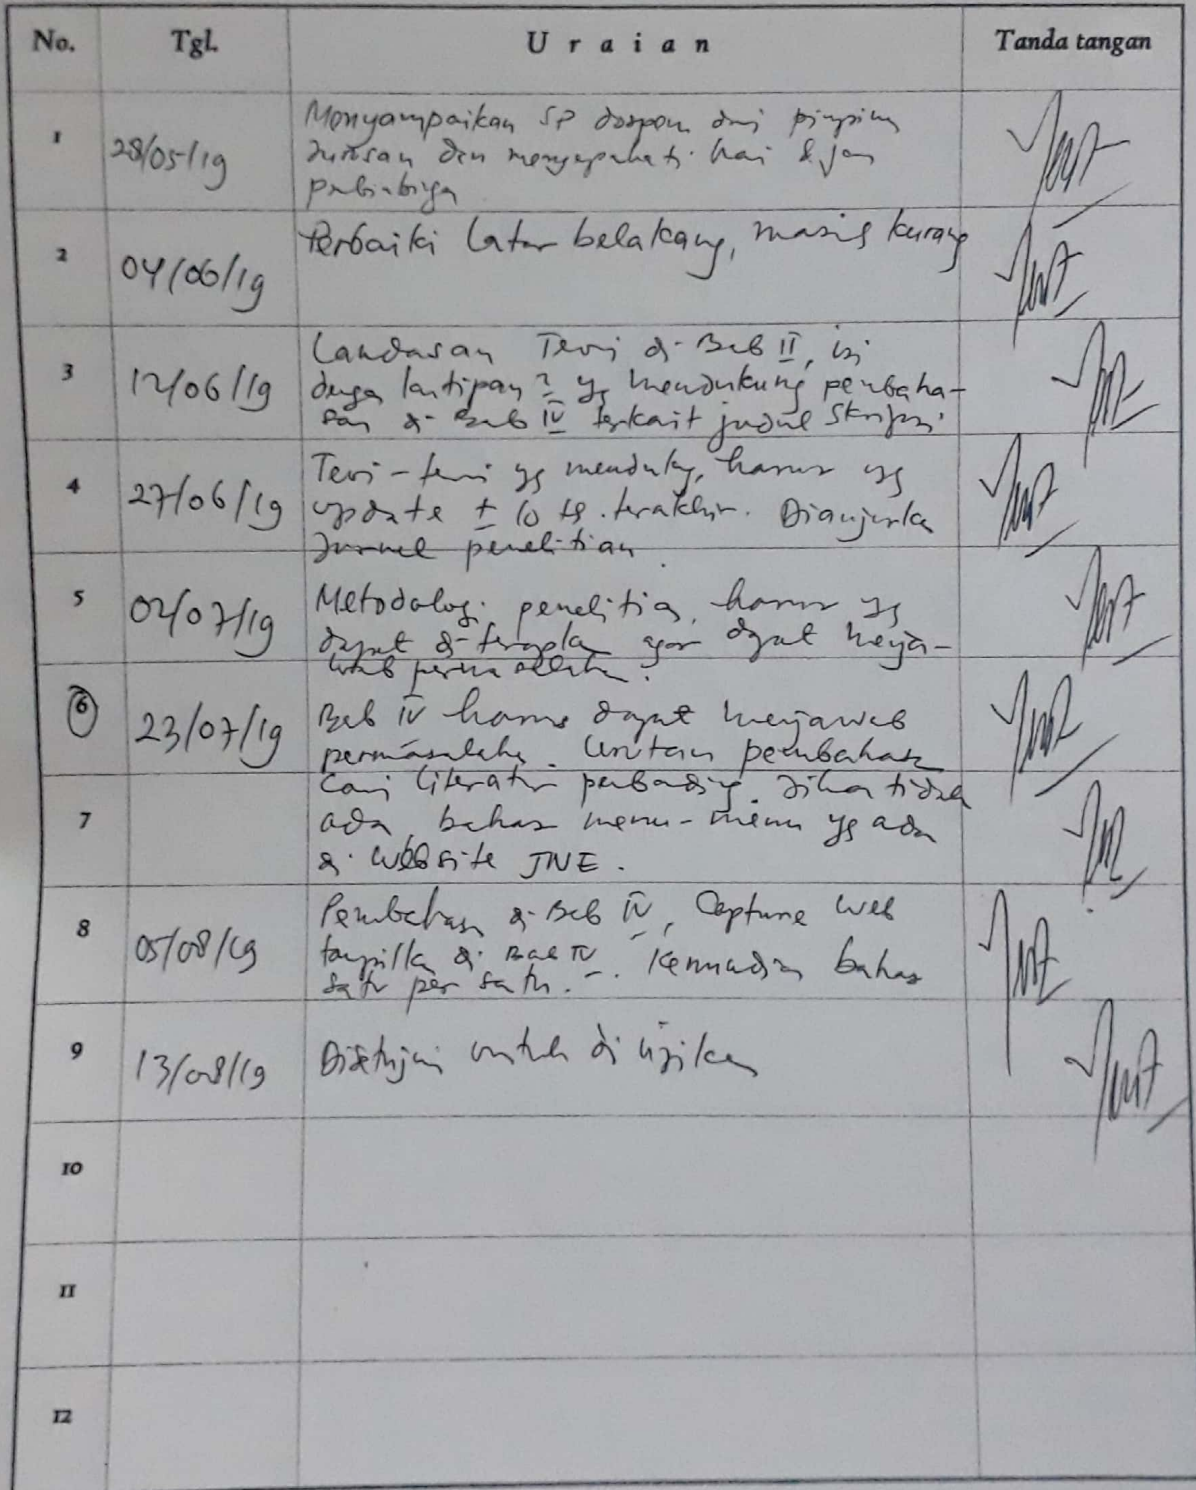 No. Tgl. Uraian Tanda tangan
1 28/05/19 Menyampaikan SP dospem dari pimpinan
jurusan dan menyepakati hari & jam
2 04/06/19 Perbaiki latar belakang, masih kurang
3 12/06/19 Landasan Teori di Bab II, isi
dengan kutipan2 yg mendukung pembaha-
san di Bab IV terkait judul Skripsi.
4 27/06/19 Teori-teori yg mendukung, harus yg
update ± 10 th. terakhir. Dianjurkan
Jurnal penelitian.
5 02/07/19 Metodologi penelitian, harus yg
dapat diterapkan agar dapat menja-
wab permasalahan.
6 23/07/19 Bab IV harus dapat menjawab
permasalahan. Urutan pembahasan
7 Cari literatur pembanding. Jika tidak
ada, bahas menu-menu yg ada
di website JNE.
8 05/08/19 Pembahasan di Bab IV, Capture web
tampilkan di Bab IV. Kemudian bahas
satu per satu.
9 13/08/19 Disetujui untuk di ujikan
10
11
12